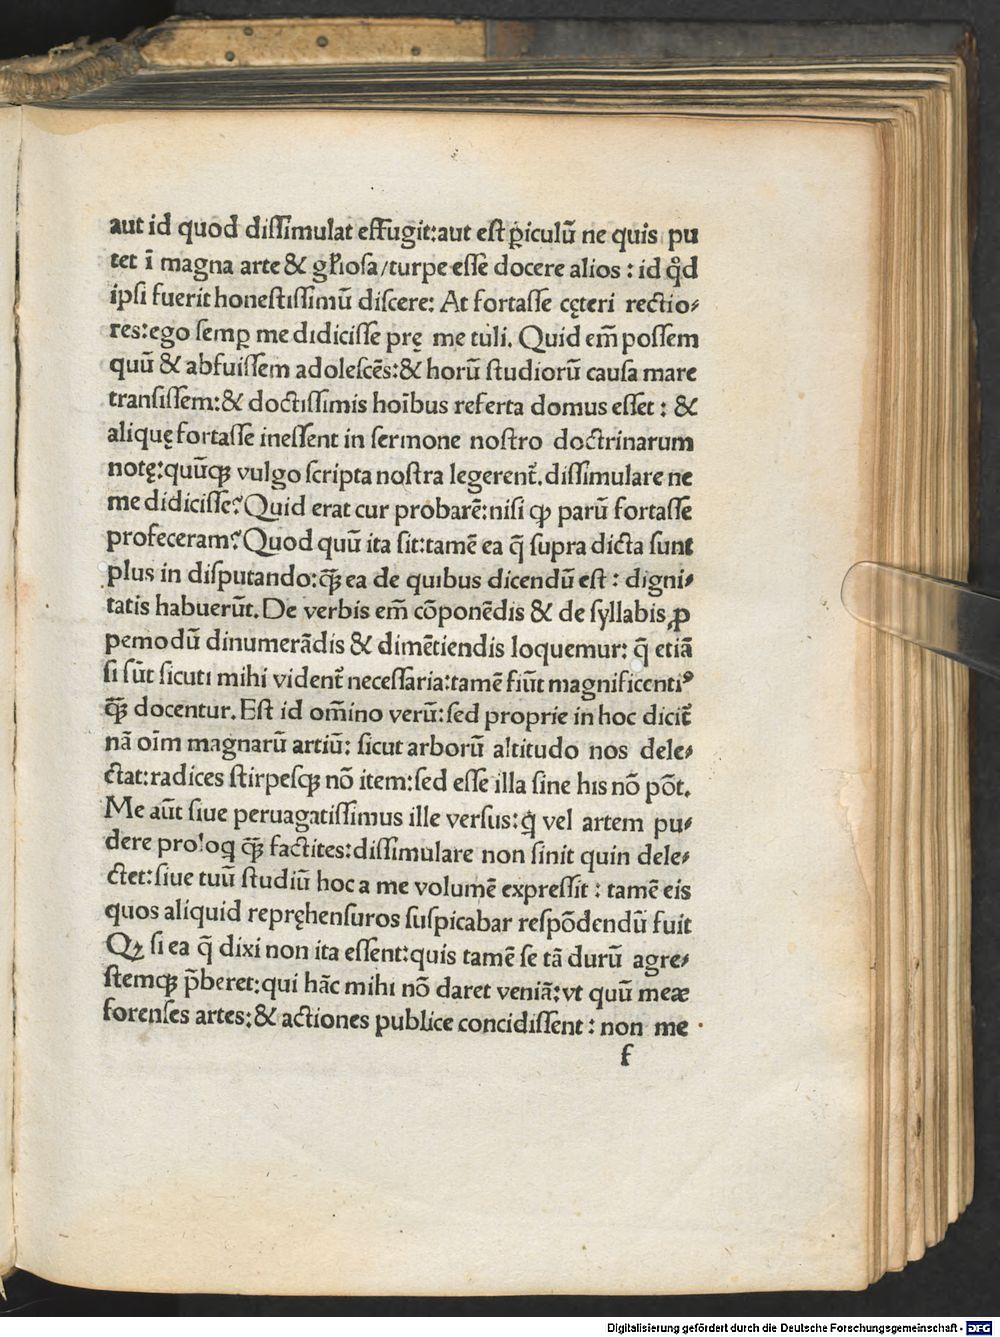 aut id quod dissimulat effugit:aut est ꝑiculũ ne quis pu
tet ĩ magna arte & gl̃iosa/turpe esse docere alios : id qđ
ipsi fuerit honestissimũ discere: At fortasse cęteri rectio⸗
res:ego semꝑ me didicisse prę me tuli. Quid em̃ possem
quũ & abfuissem adolescẽs:& horũ studiorũ causa mare
transissem:& doctissimis hoĩbus referta domus esset : &
aliquę fortasse inessent in sermone nostro doctrinarum
notę:quũqꝫ vulgo scripta nostra legerent̃.dissimulare ne
me didicisse? Quid erat cur probarẽ:nisi ꝙ parũ fortasse
profeceram? Quod quũ ita sit:tamẽ ea q̃ supra dicta sunt
plus in disputando:q̃ꝫ ea de quibus dicendũ est : digni⸗
tatis habuerũt. De verbis em̃ cõponẽdis & de syllabis ꝓ
pemodũ dinumerãdis & dimẽtiendis loquemur: q̃ etiã
si sũt sicuti mihi vident̃ necessaria:tamẽ fiũt magnificentiꝰ
q̃ꝫ docentur. Est id om̃ino verũ:sed proprie in hoc dicit̃
nã oĩm magnarũ artiũ: sicut arborũ altitudo nos dele⸗
ctat:radices stirpesqꝫ nõ item:sed esse illa sine his nõ põt.
Me aũt siue peruagatissimus ille versus:q̇ vel artem pu⸗
dere proloq q̃ꝫ factites:dissimulare non sinit quin dele⸗
ctet:siue tuũ studiũ hoc a me volumẽ expressit : tamẽ eis
quos aliquid repręhensuros suspicabar respõdendũ fuit
Qꝫ si ea q̃ dixi non ita essent:quis tamẽ se tã durũ agre⸗
stemqꝫ p̃beret:qui hãc mihi nõ daret veniã:vt quũ meæ
forenses artes:& actiones publice concidissent : non me
f
Digitalisierung gefördert durch die Deutsche Forschungsgemeinschaft - DFG